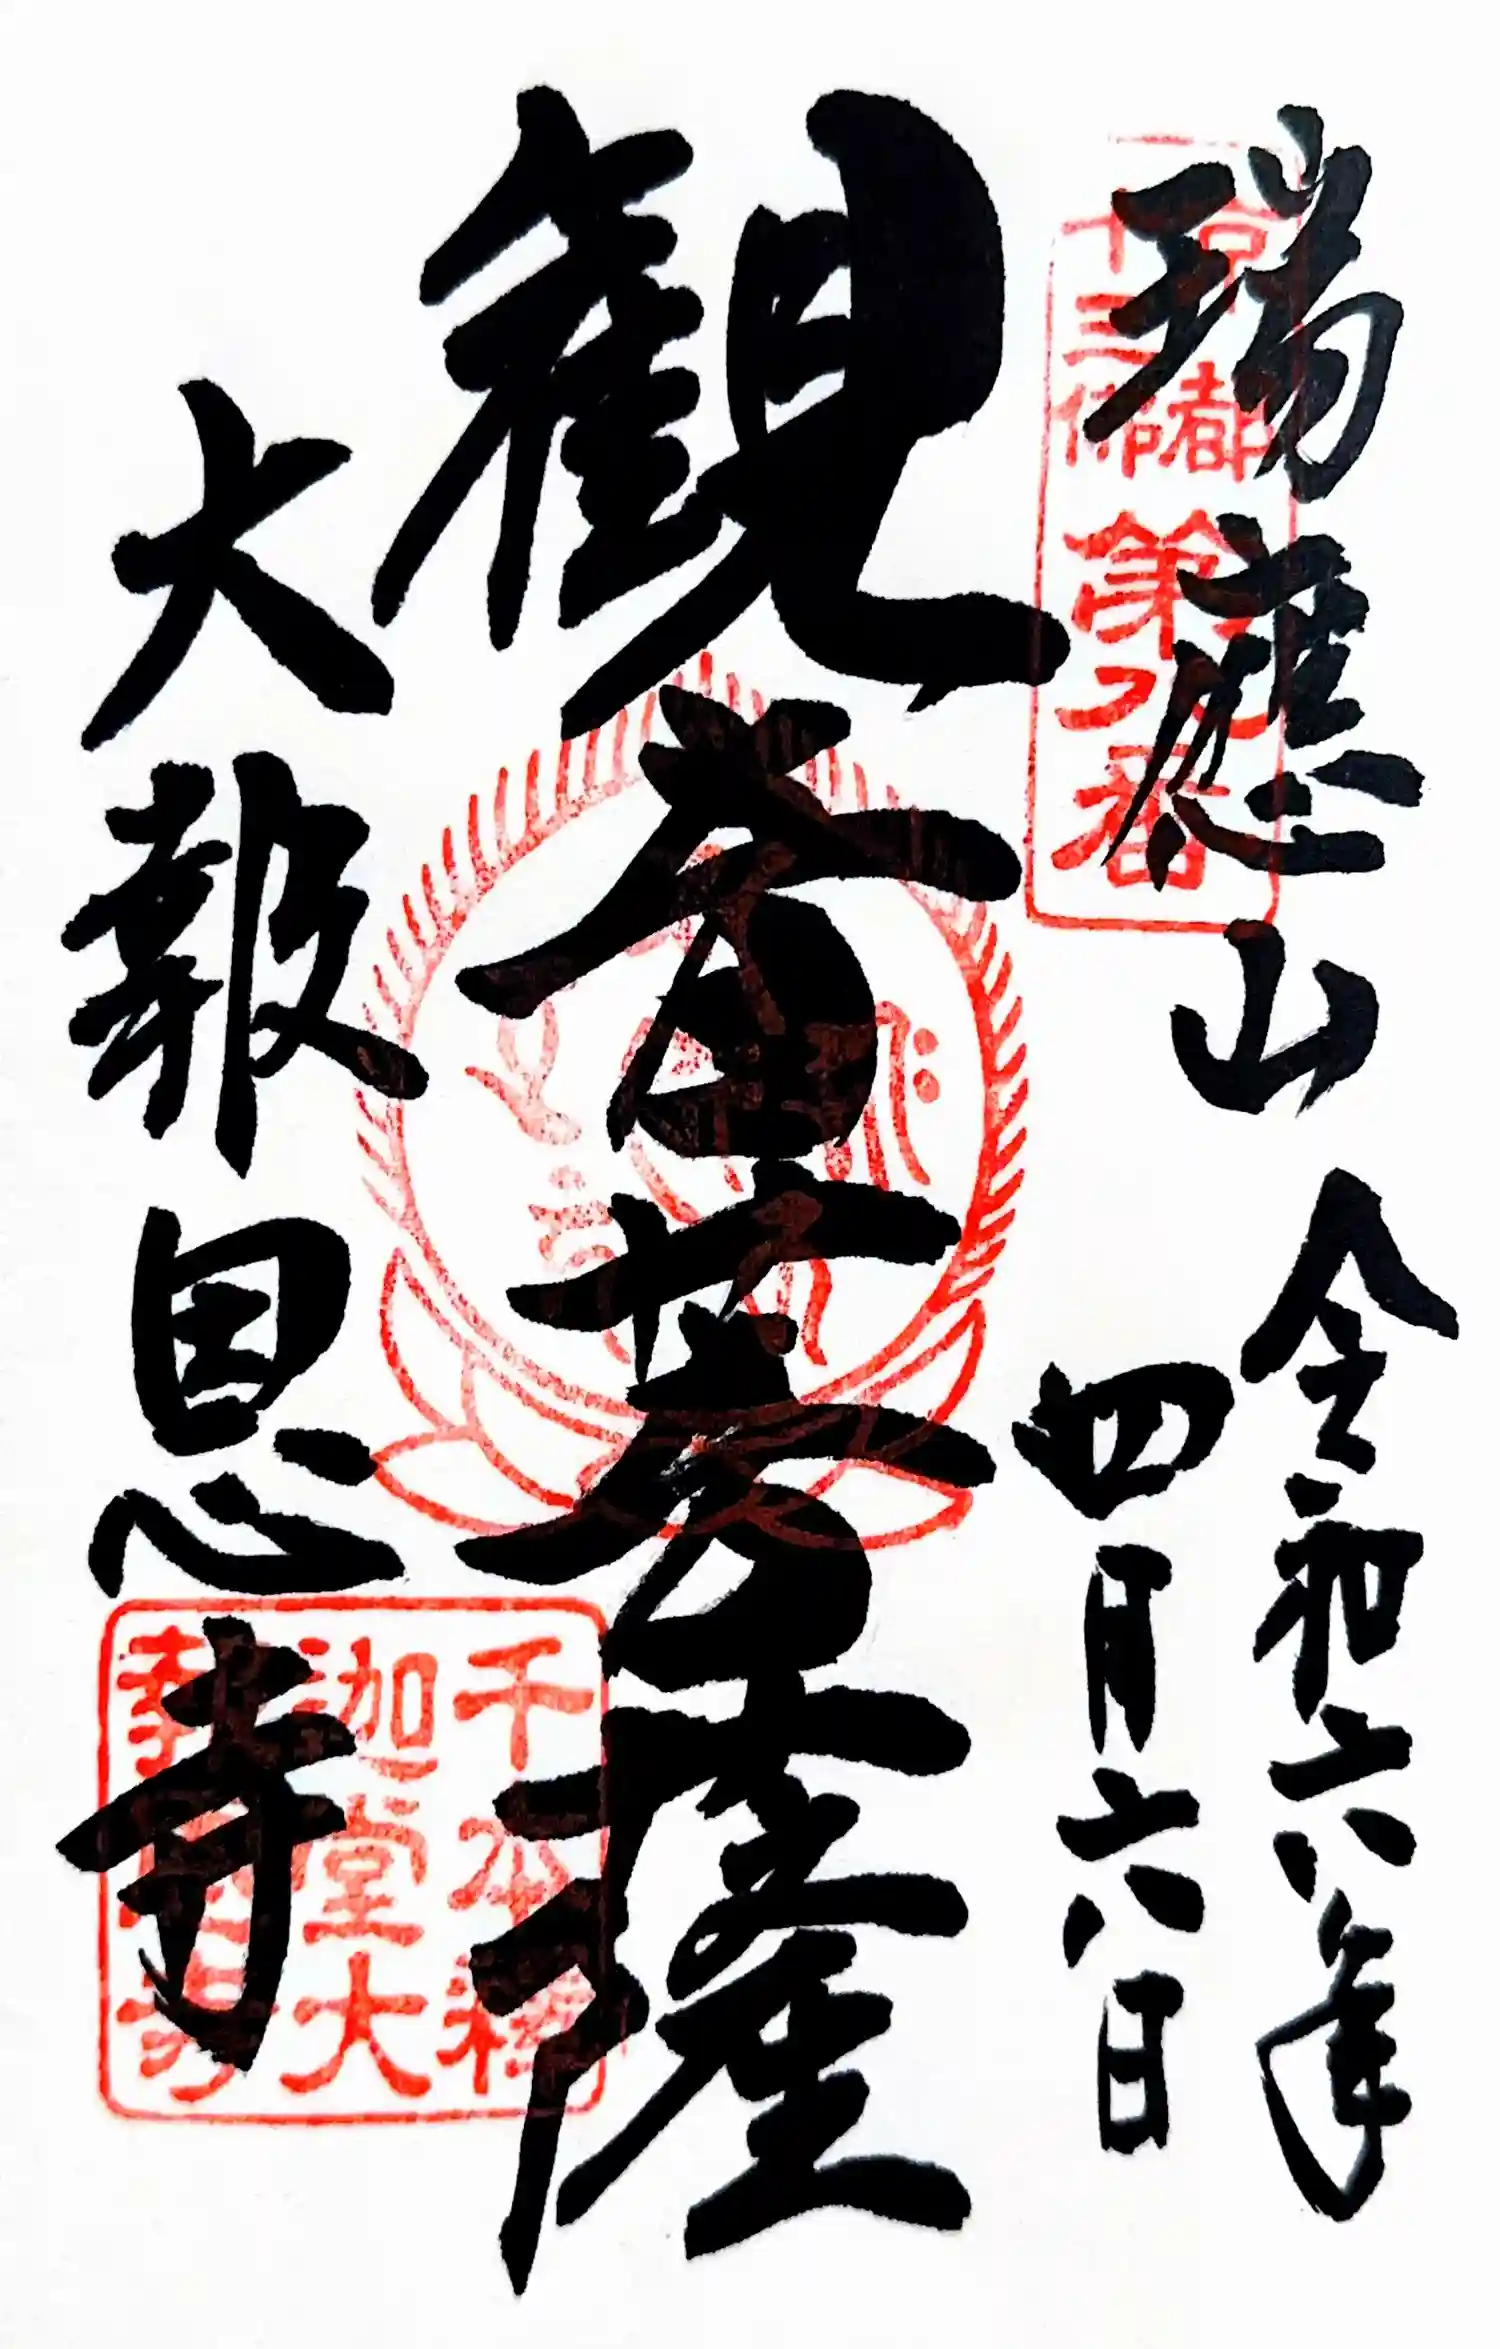 瑞應山
令和六年
四月六日
京都
十三佛
第八番
観音菩薩
大報恩寺
千本釋
迦堂大
報恩寺